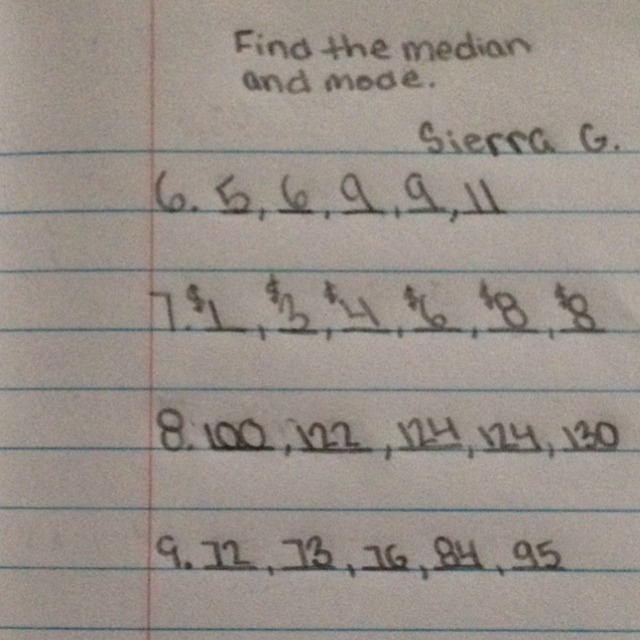 Find the median
and mode.
Sierra G.
6. 5, 6, 9, 9, 11
7. $1, $3, $4, $6, $8, $8
8. 100, 122, 124, 124, 130
9. 72, 73, 76, 84, 95